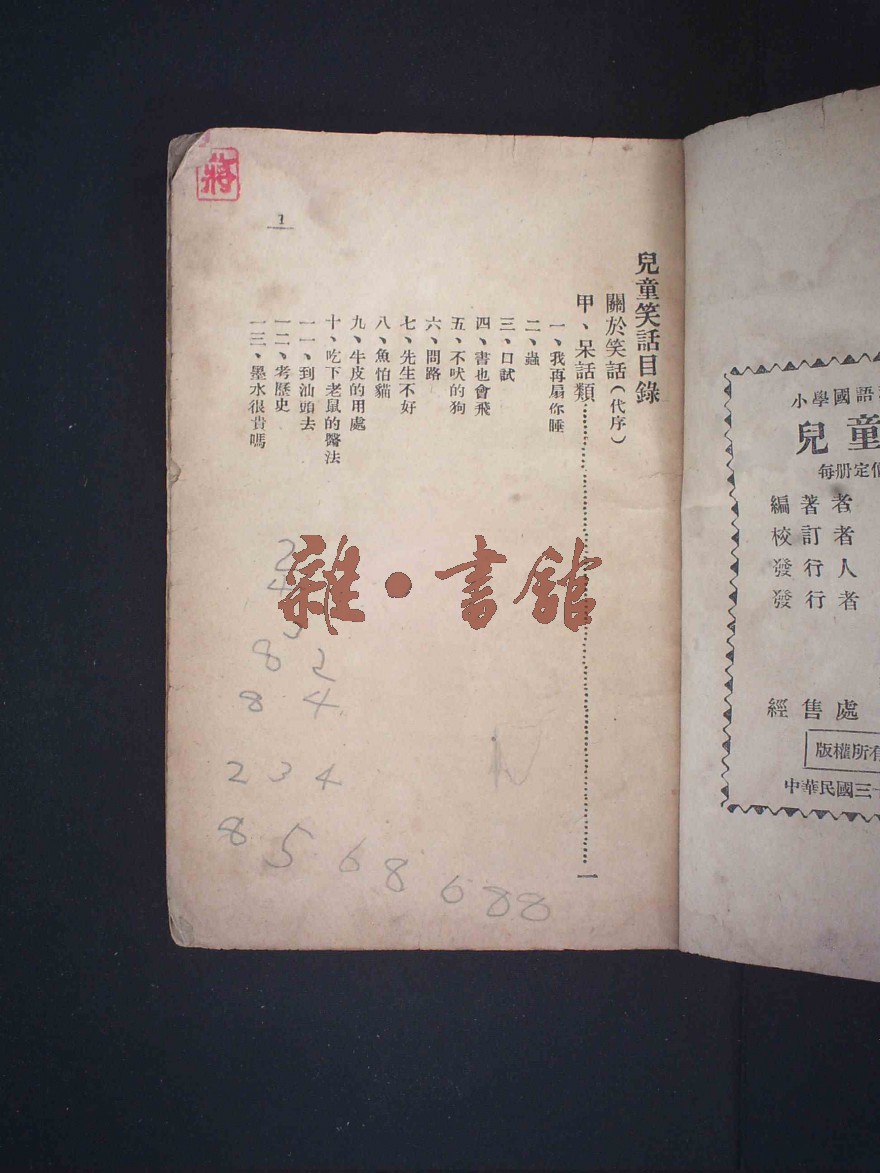 小學國語
兒童
每册定價
編著者
校訂者
發行人
發行者
經售處
版權所有
中華民國三十
兒童笑話目錄
關於笑話(代序)
甲、呆話類……一
一、我再扇你睡
二、蟲
三、口試
四、書也會飛
五、不吠的狗
六、問路
七、先生不好
八、魚怕貓
九、牛皮的用處
十、吃下老鼠的醫法
一一、到汕頭去
一二、考歷史
一三、墨水很貴嗎
1
蔣
雜·書館
2
4
3
8 2
8 4
2 3 4
8 5 6 8 6 8 8